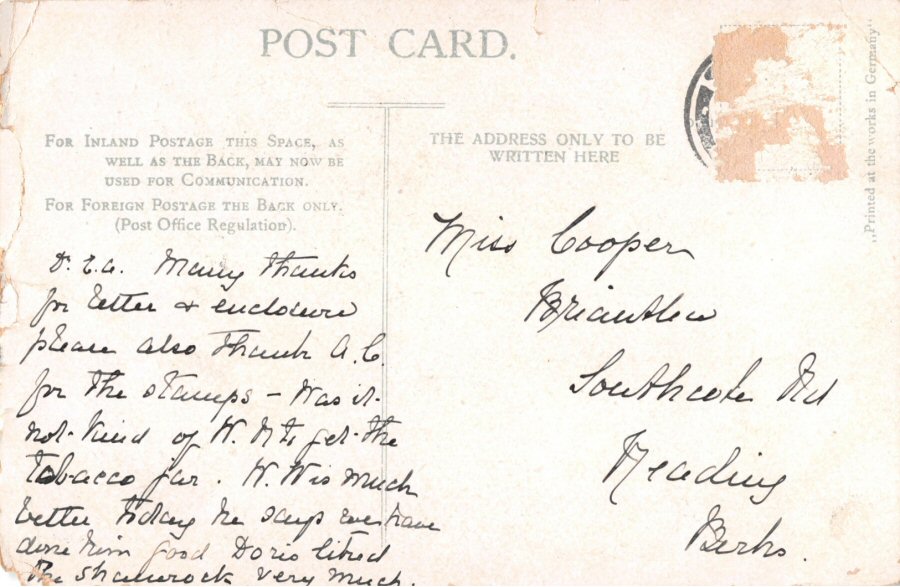 POST CARD.
FOR INLAND POSTAGE THIS SPACE, AS
WELL AS THE BACK, MAY NOW BE
USED FOR COMMUNICATION.
FOR FOREIGN POSTAGE THE BACK ONLY.
(Post Office Regulation).
THE ADDRESS ONLY TO BE
WRITTEN HERE
„Printed at the works in Germany"
D. E. a. Many thanks
for letter & enclosure
please also thank A. C.
for the stamps - Was it
not kind of W. to get the
tobacco jar. W. W is much
better today he says we have
done him good Doris liked
the shamrock very much.
Miss Cooper
Southcote Rd
Reading
Berks.